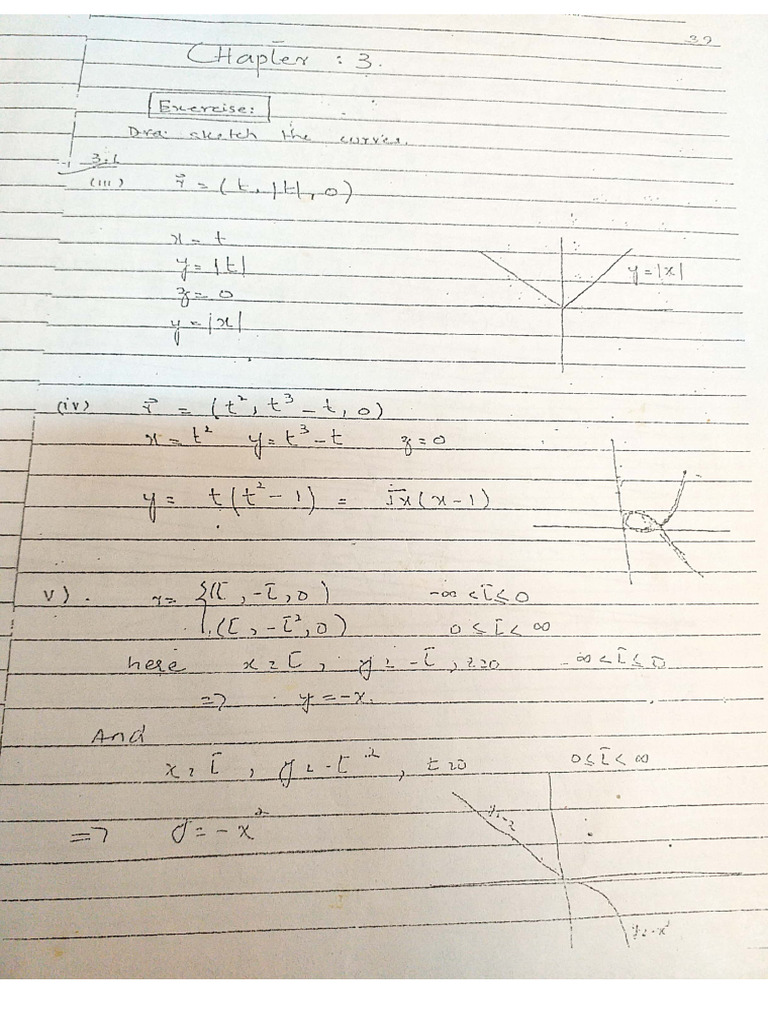 39
CHapter : 3.
Exercise:
Dra sketch the curves.
3.1
(iii) r⃗ = (t, |t|, 0)
x = t
y = |t|
z = 0
y = |x|
y = |x|
(iv) r⃗ = (t², t³ - t, 0)
x = t² y = t³ - t z = 0
y = t(t² - 1) = √x(x - 1)
v). r = {(t, -t, 0) -∞ < t ≤ 0
(t, -t², 0) 0 ≤ t < ∞
here x = t, y = -t, z = 0 -∞ < t ≤ 0
=> y = -x.
And
x = t, y = -t², z = 0 0 ≤ t < ∞
=> y = -x²
y = -x²